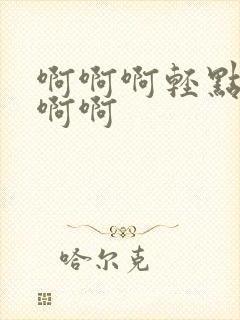 啊啊啊轻點
啊啊
哈尔克